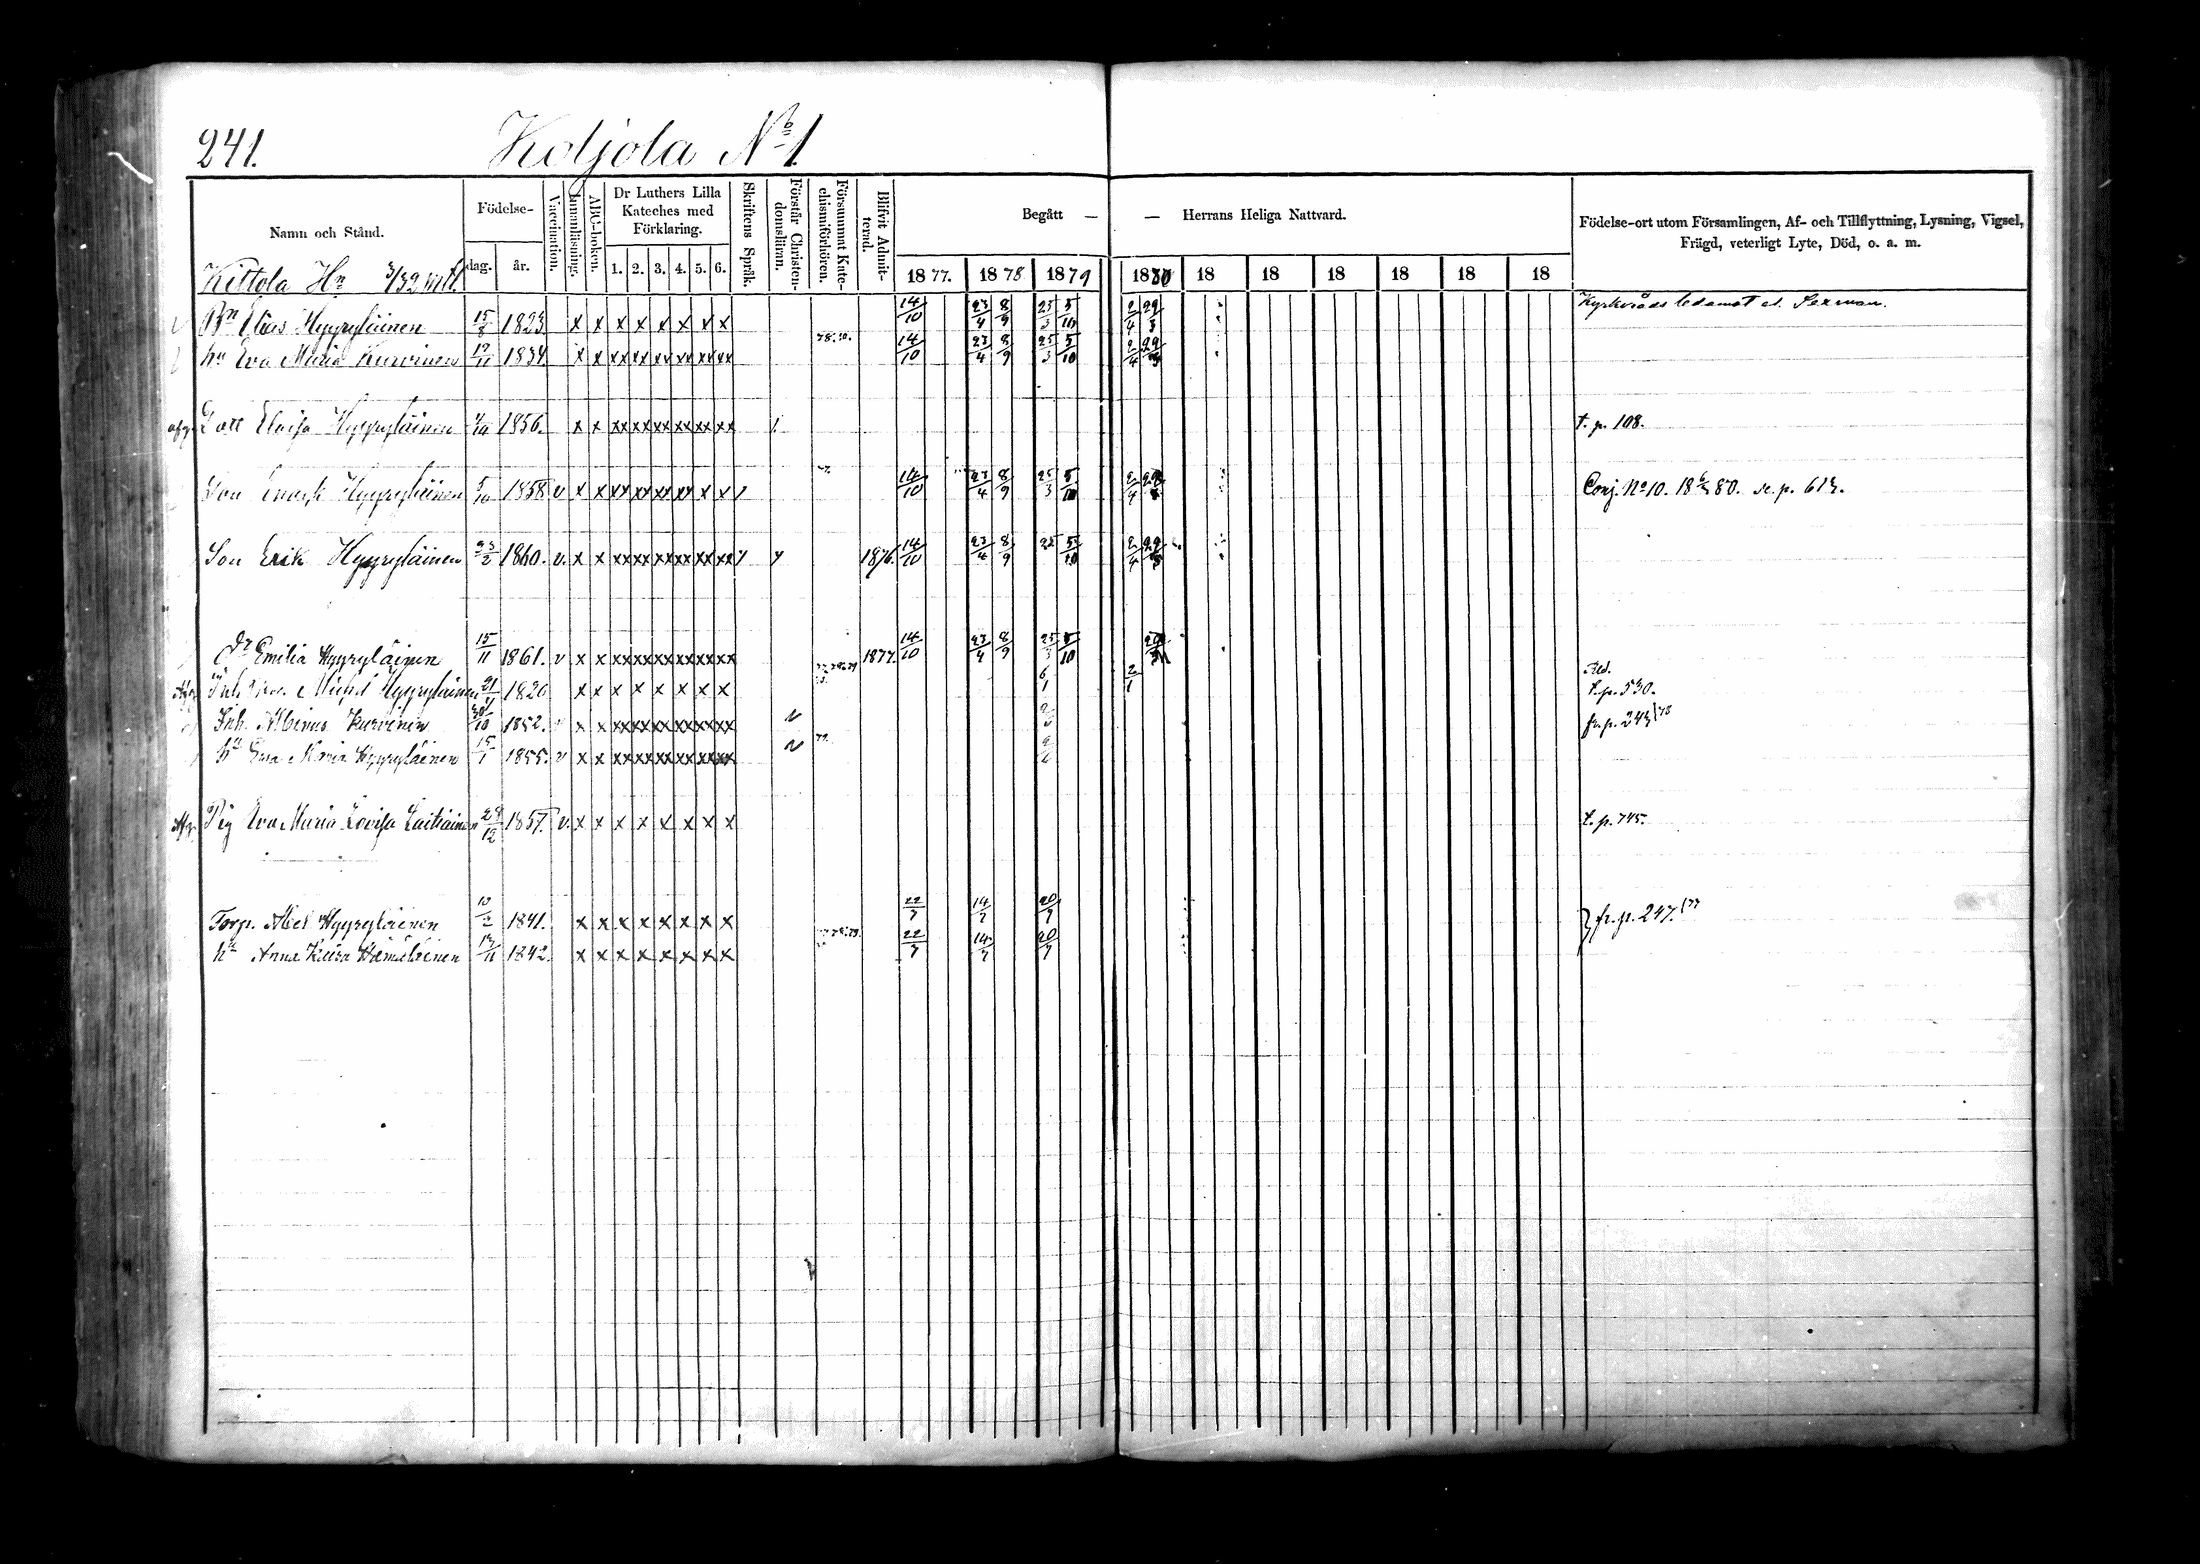 241. Koljola No 1.
Namn och Stånd. Födelse- dag. år. Vaccination. Innanläsning. ABC-boken. Dr Luthers Lilla Kateches med Förklaring. 1. 2. 3. 4. 5. 6. Skriftens Språk. Förstår Christendomsläran. Försummat Katechismiförhören. Blifvit Admitterad. Begått — — Herrans Heliga Nattvard. Födelse-ort utom Församlingen, Af- och Tillflyttning, Lysning, Vigsel, Frägd, veterligt Lyte, Död, o. a. m.
Kettola Hn 3/32 mtl. 1877. 1878 1879 1880 18 18 18 18 18 18
Bn Elias Hyyryläinen 15/8 1823 x x x x x x x x 14/10 23/4 8/9 25/3 5/10 2/4 29/3 Kyrkoråds ledamot
hu Eva Maria Kurvinen 1834 x x xx xx xx xx xx xx 78. 14/10 23/4 8/9 25/3 5/10 2/4 29/3
afg. Dott Hyyryläinen 1856. x x xx xx xx xx xx xx t. p. 108.
Son Enock Hyyryläinen 5/10 1858 v x x xx xx xx xx x x 14/10 23/4 8/9 25/3 5/10 2/4 Conj. No 10. 18 80. se. p. 613.
Son Erik Hyyryläinen 23/2 1860. v. x x xx xx xx xx xx xx 1876. 14/10 23/4 8/9 25 5/10 2/4 29/3
Dr Emilia Hyyryläinen 15/11 1861. v x x xx xx xx xx xx xx 1877. 14/10 23/4 8/9 25/3 5/10
Afg. Inh Michel Hyyryläinen 21/ 1820 x x x x x x x x 6/1 2/1 t. p. 530.
Inh. Albinus Kurvinen 30/10 1852. x x xx xx xx xx xx xx fr. p. 243/78
hu Eva Maria Hyyryläinen 15/1 1855. v x x xx xx xx xx xx xx 79.
Afg. Pig Eva Maria Lovisa Laitiainen 28/12 1857. v. x x x x x x x x t. p. 745.
Torp. Abel Hyyryläinen 1841. x x x x x x x x 22/7 14/7 20/7 fr. p. 247./77
hu Anna Kaisa Hämäläinen 1842. x x x x x x x x 22/7 14/7 20/7